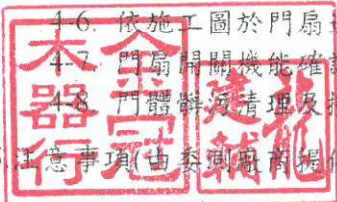 4-6. 依施工圖於門扇
4-7. 門扇開關機能確
4-8. 門體髒污清理及
注意事項(由委測廠商提供
金冠木器行
龍建輔